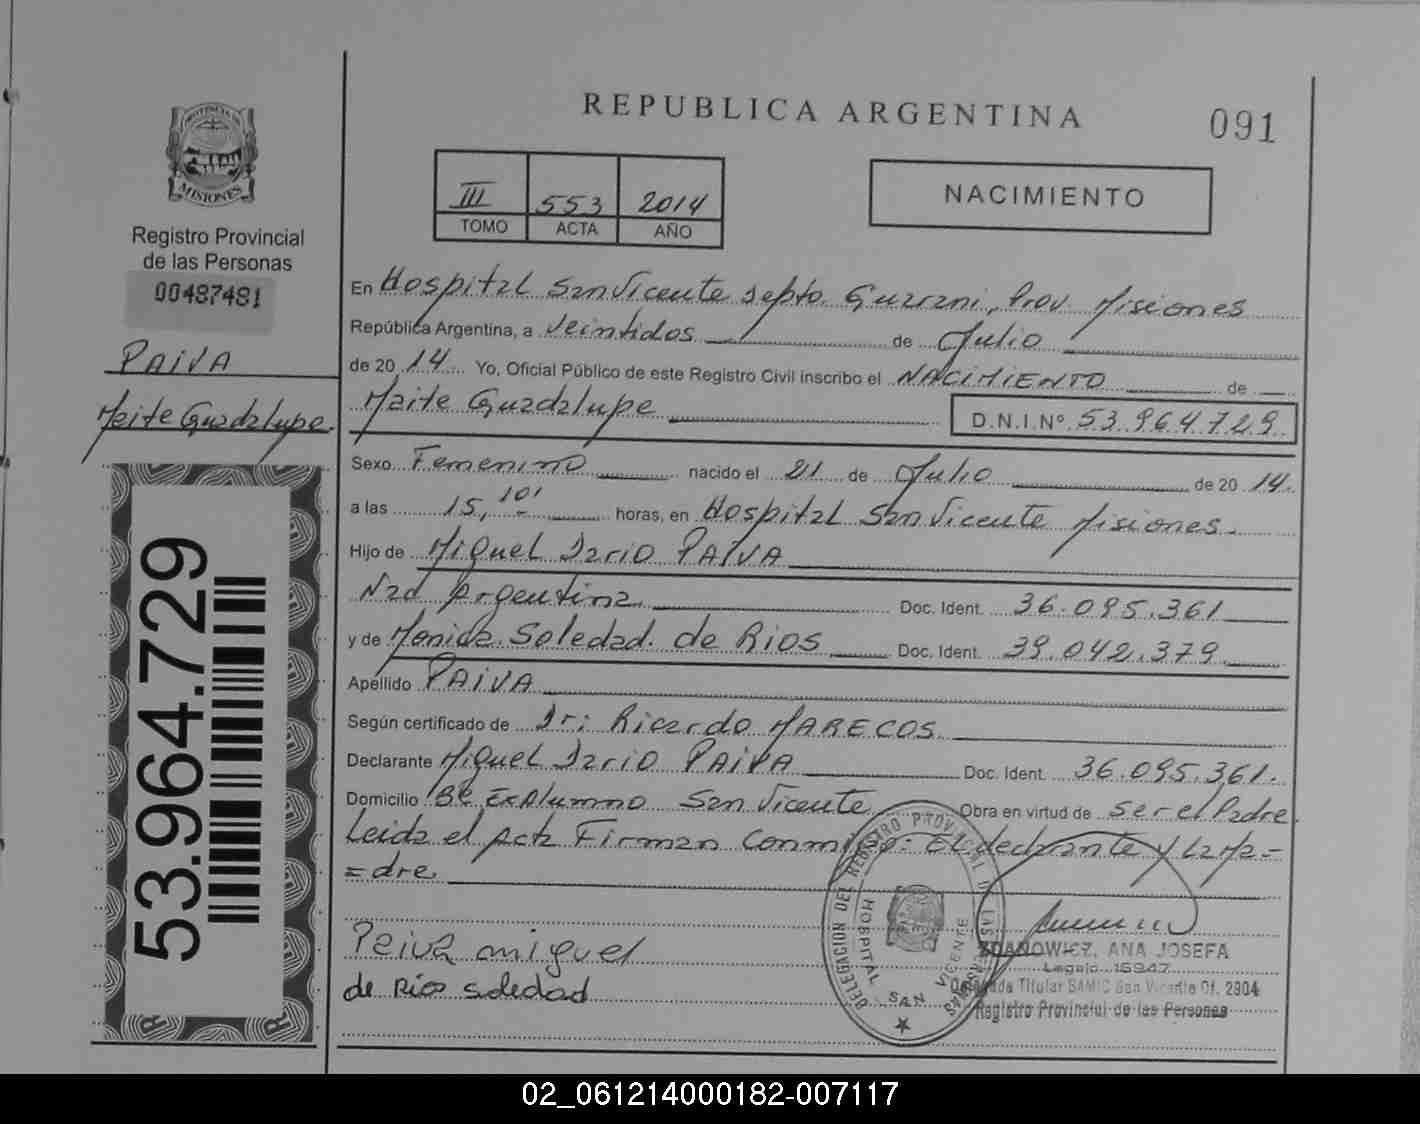 REPUBLICA ARGENTINA
091
PROVINCIA DE
MISIONES
Registro Provincial
de las Personas
00487481
PAIVA
Maite Guadalupe.
53.964.729
III 553 2014
TOMO ACTA AÑO
NACIMIENTO
En Hospital San Vicente Depto Guarani, Prov. Misiones
República Argentina, a Veintidos de Julio
de 20 14 Yo, Oficial Público de este Registro Civil inscribo el NACIMIENTO de
Maite Guadalupe D.N.I.Nº 53.964.729
Sexo Femenino nacido el 21 de Julio de 20 14.
a las 15,10' horas, en Hospital San Vicente Misiones.
Hijo de Miguel Dario PAIVA
Nad Argentina Doc. Ident. 36.095.361
y de Monica Soledad de Rios Doc. Ident. 39.042.379
Apellido PAIVA
Según certificado de Dr: Ricardo MARECOS
Declarante Miguel Dario PAIVA Doc. Ident. 36.095.361.
Domicilio Bº ExAlumno San Vicente Obra en virtud de ser el Padre
Leida el Acta Firman Conmigo: El declarante y La Ma=
=dre
Paiva miguel
de Rios soledad
DELEGACION DEL REGISTRO PROVINCIAL DE LAS PERSONAS
HOSPITAL SAN VICENTE
ZDANOWICZ, ANA JOSEFA
Legajo 15947
Delegada Titular SAMIC San Vicente Of. 2904
Registro Provincial de las Personas
02_061214000182-007117